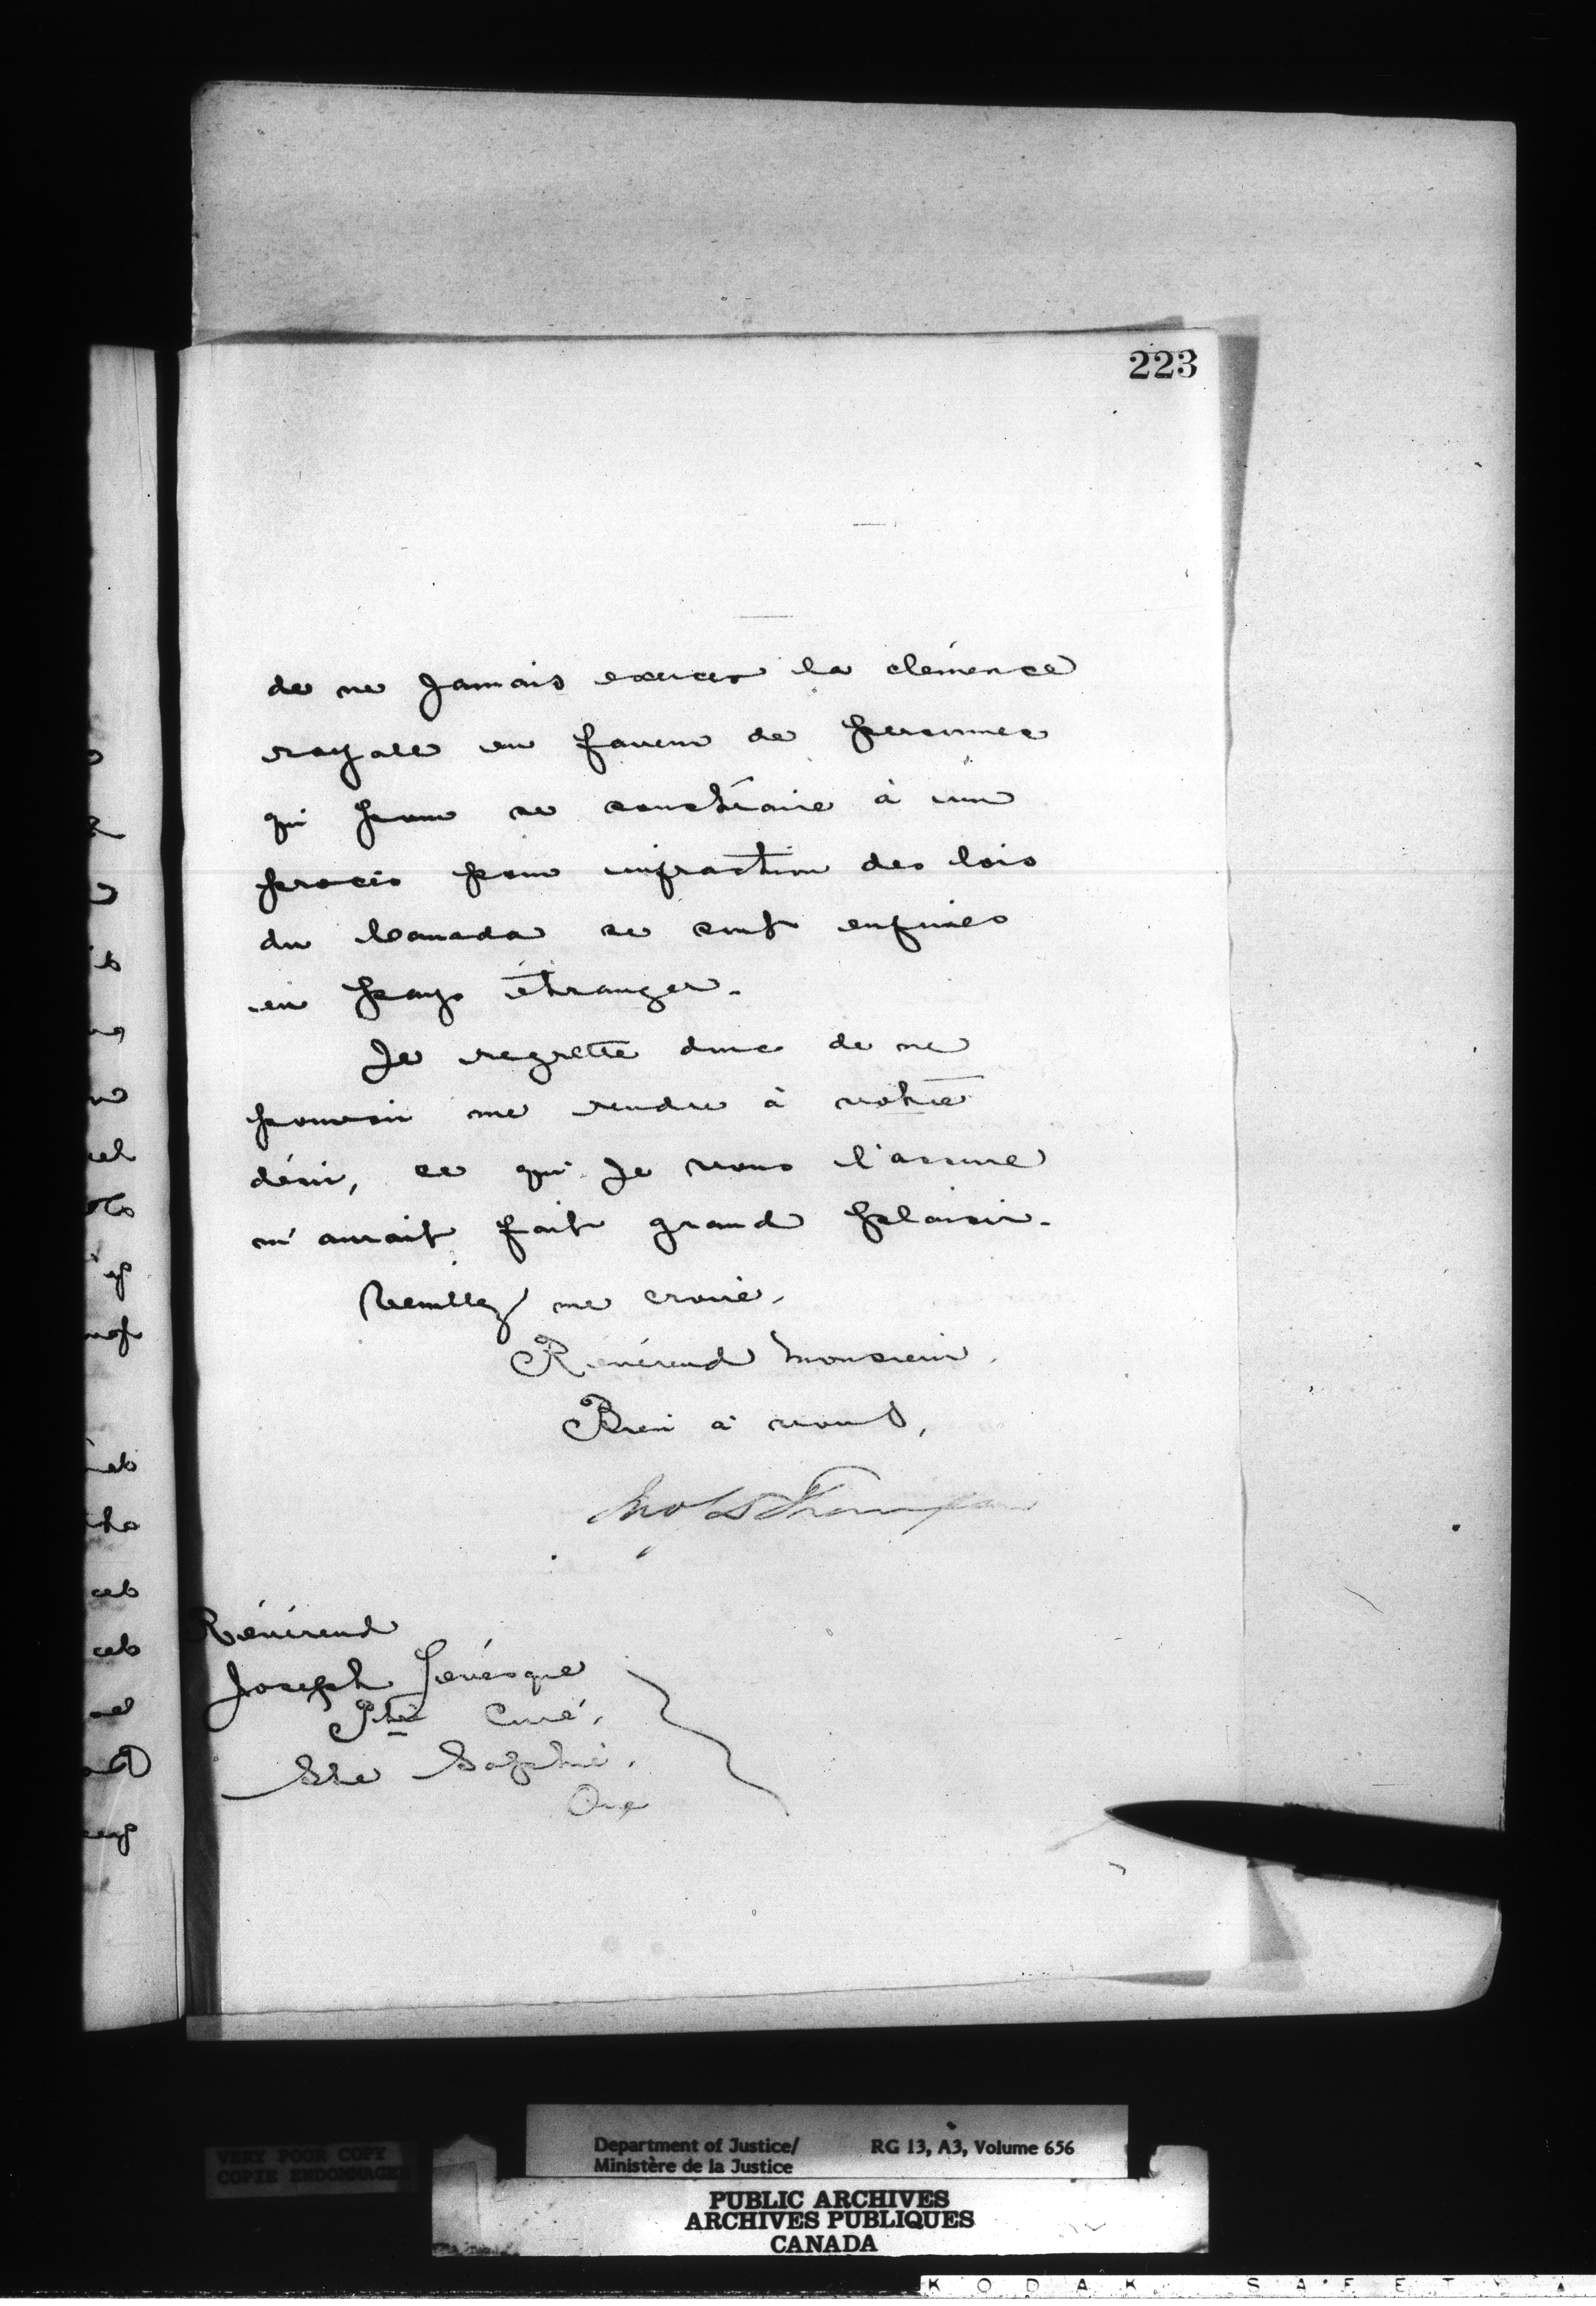 223
de ne jamais exercer la clémence
royale en faveur de personnes
qui pour se soustraire à un
procès pour infraction des lois
du Canada se sont enfuies
en pays étranger.
Je regrette donc de ne
pouvoir me rendre à votre
désir, ce qui je vous l'assure
m'aurait fait grand plaisir.
Veuillez me croire,
Révérend Monsieur,
Bien à vous,
Jno S D Thompson
Révérend
Joseph Lévesque
Ptre Curé,
Ste Sophie,
Que
VERY POOR COPY
COPIE ENDOMMAGEE
Department of Justice/ RG 13, A3, Volume 656
Ministère de la Justice
PUBLIC ARCHIVES
ARCHIVES PUBLIQUES
CANADA
KODAK SAFETY